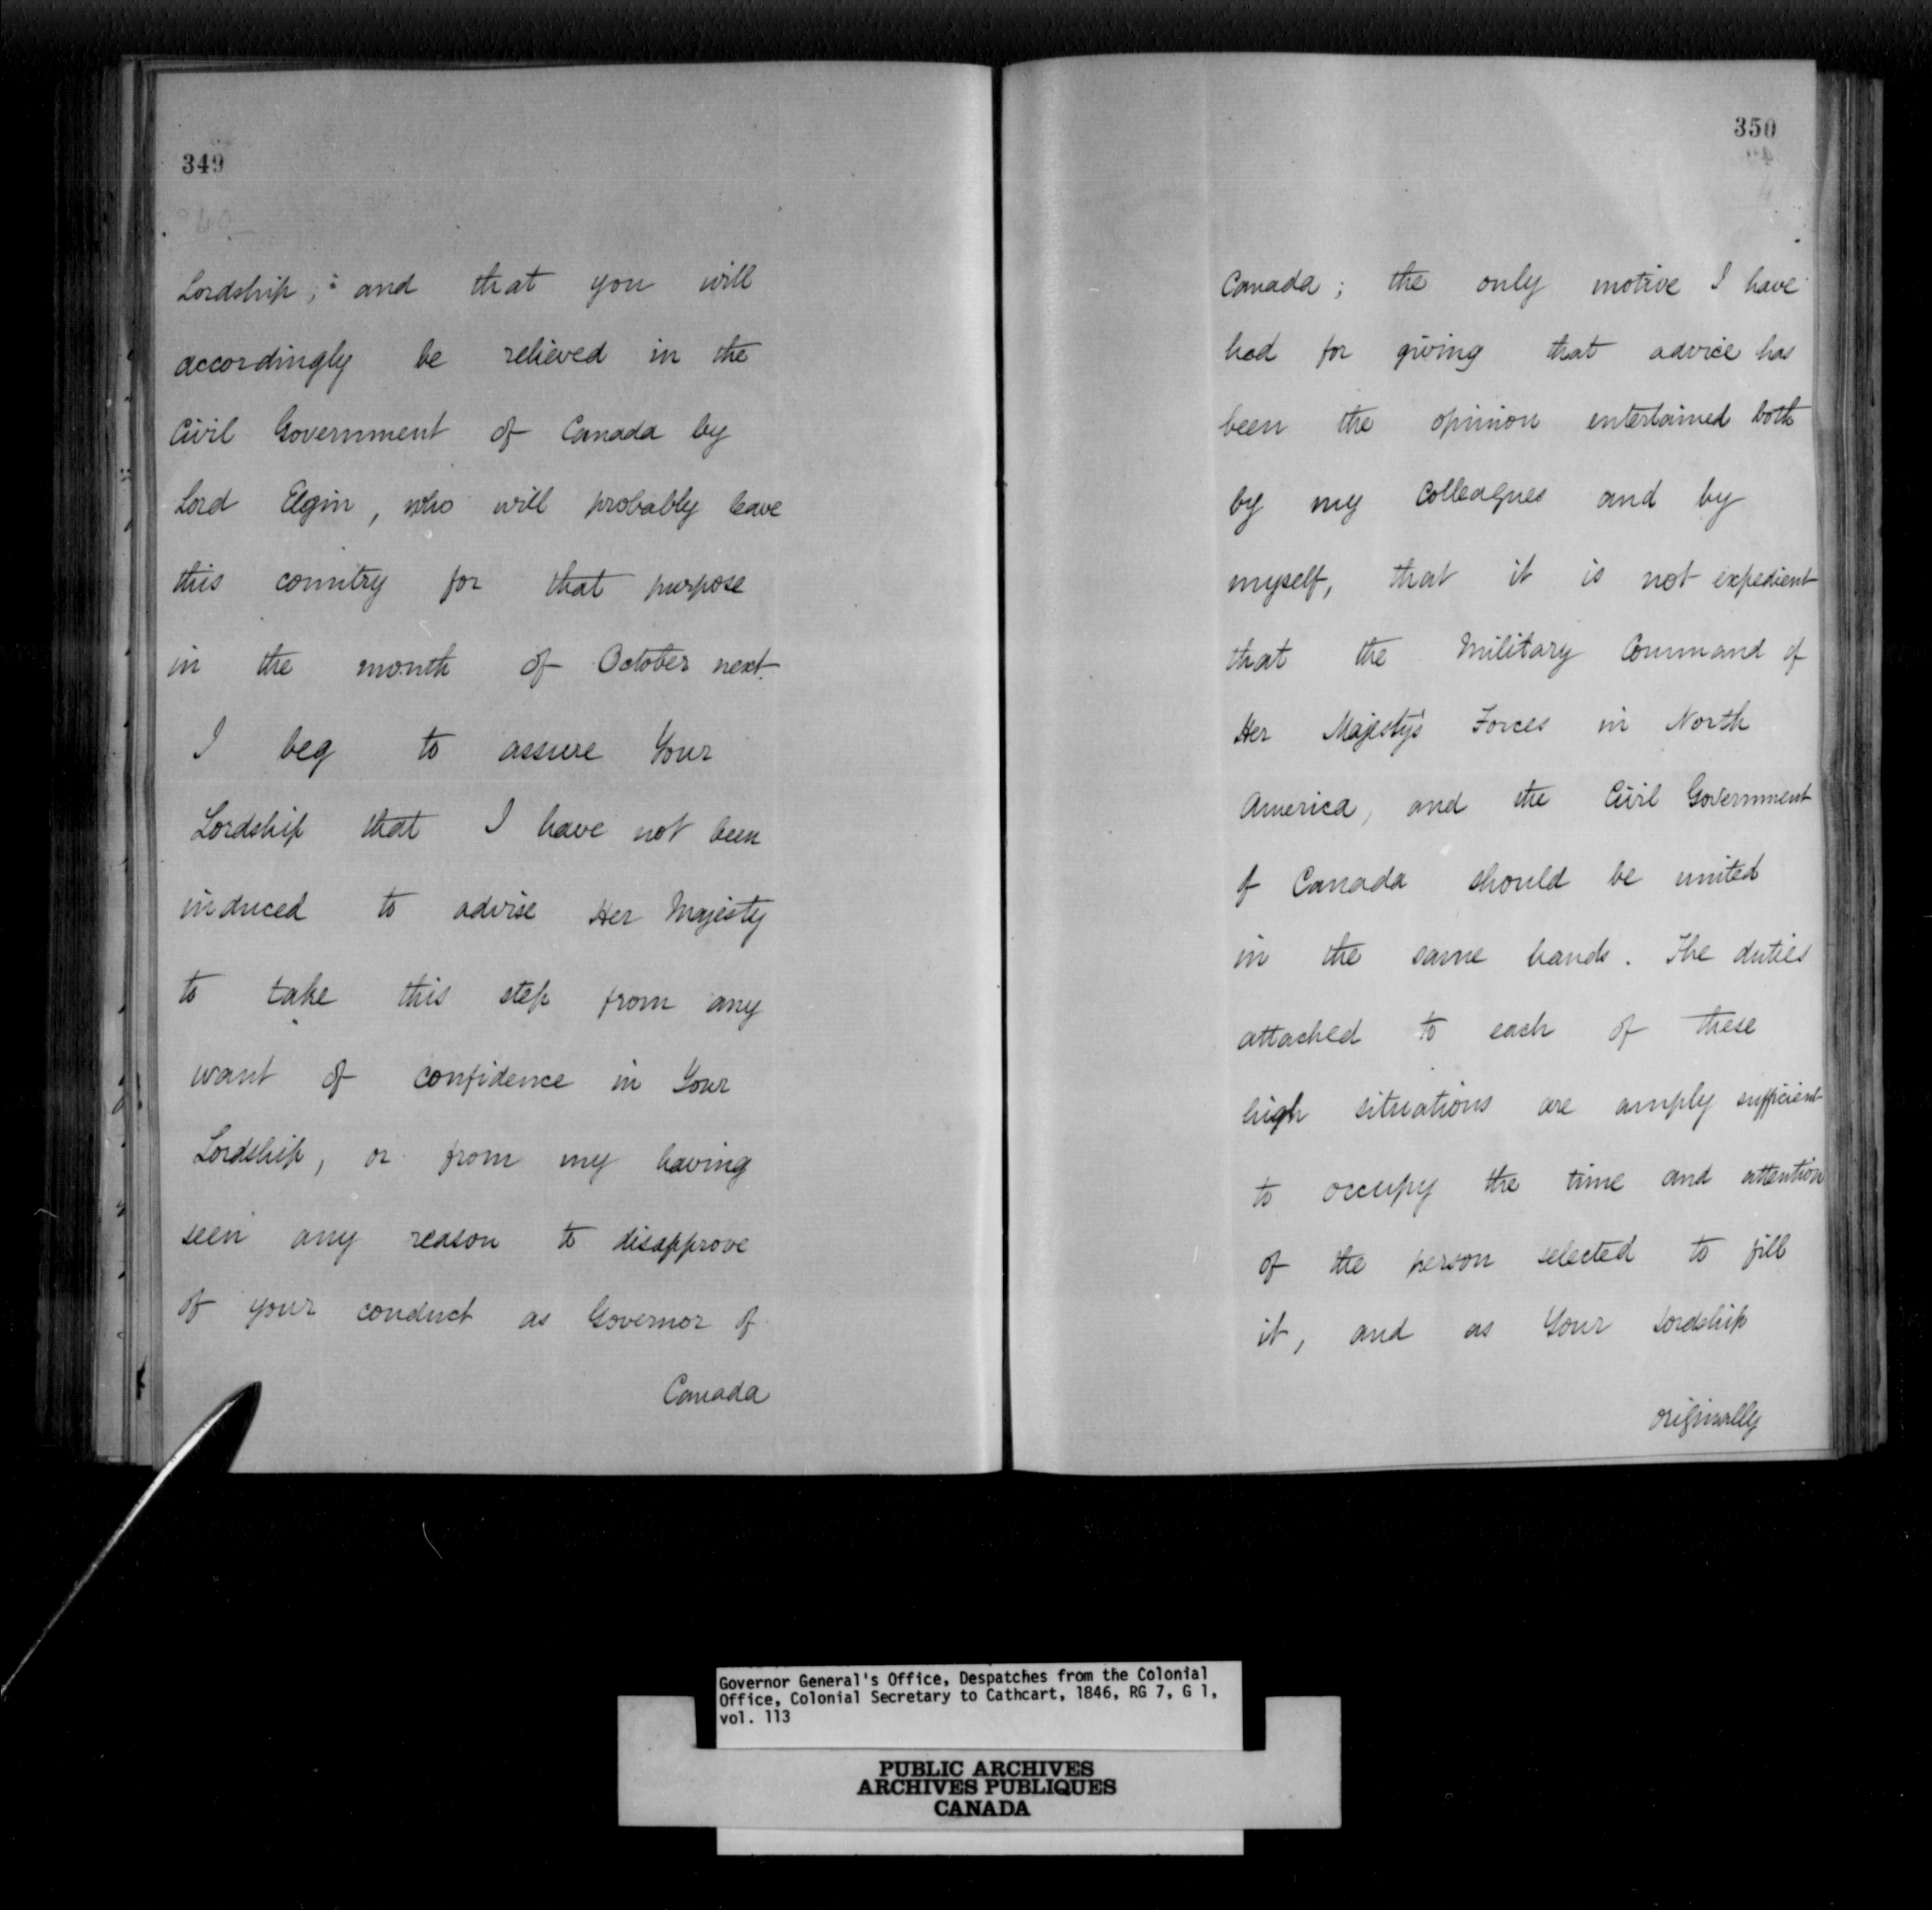 349
Lordship; and that you will
accordingly be relieved in the
Civil Government of Canada by
Lord Elgin, who will probably leave
this country for that purpose
in the month of October next.
I beg to assure Your
Lordship that I have not been
induced to advise Her Majesty
to take this step from any
want of confidence in Your
Lordship, or from my having
seen any reason to disapprove
of your conduct as Governor of
Canada
350
Canada; the only motive I have
had for giving that advice has
been the opinion entertained both
by my Colleagues and by
myself, that it is not expedient
that the Military Command of
Her Majesty's Forces in North
America, and the Civil Government
of Canada should be united
in the same hands. The duties
attached to each of these
high situations are amply sufficient
to occupy the time and attention
of the person selected to fill
it, and as Your Lordship
originally
Governor General's Office, Despatches from the Colonial
Office, Colonial Secretary to Cathcart, 1846, RG 7, G 1,
vol. 113
PUBLIC ARCHIVES
ARCHIVES PUBLIQUES
CANADA